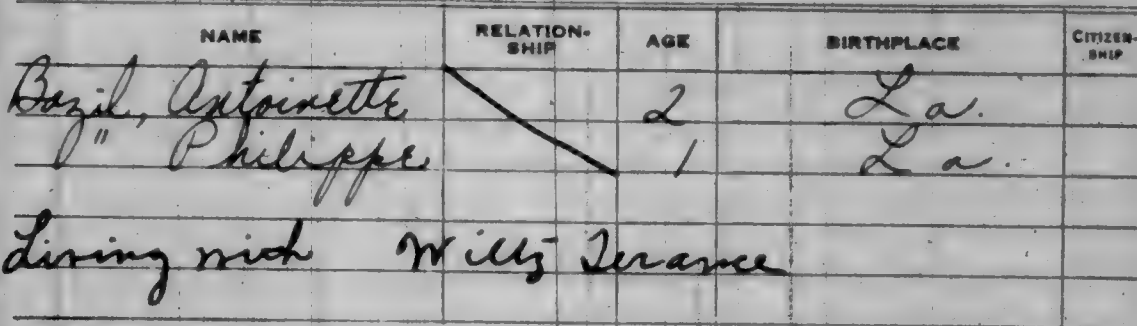 NAME RELATION-SHIP AGE BIRTHPLACE CITIZEN-SHIP
Bazil, Antoinette 2 La.
" Philippe 1 La.
Living with Willz Terance